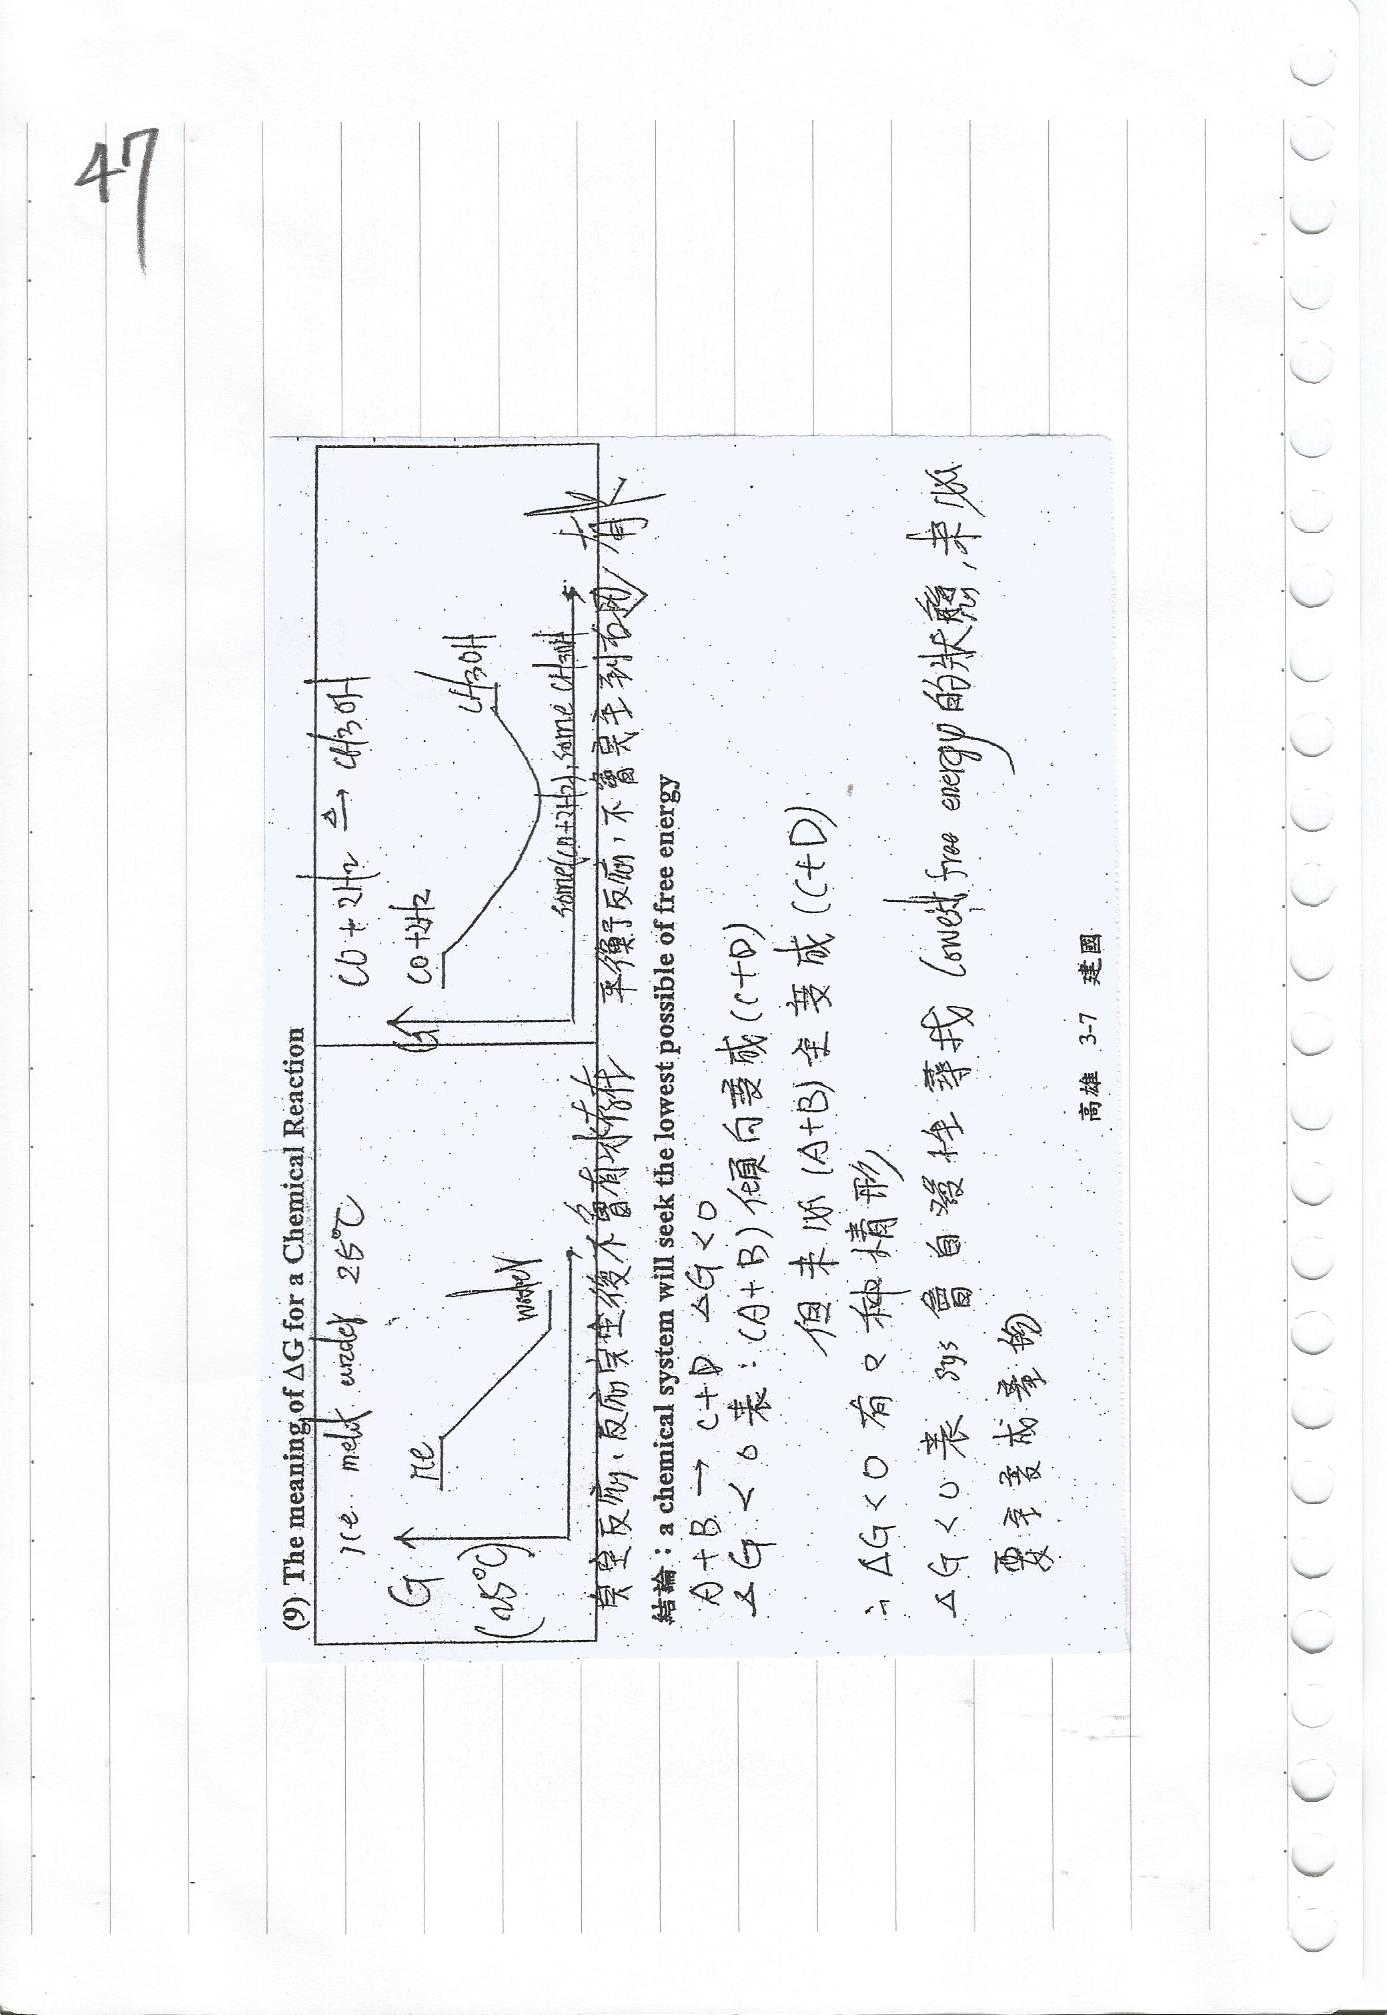 47
(9) The meaning of ΔG for a Chemical Reaction
ice melt under 25℃
G
(25℃)
ice
water
CO + 2H2 ⇌ CH3OH
G
CO+2H2
CH3OH
some(CO+2H2), some CH3OH
完全反应, 反应完全後不會有冰存在
平衡反应, 不會完全到右边,
結論：a chemical system will seek the lowest possible of free energy
A+B → C+D ΔG<0
ΔG < 0 表：(A+B) 傾向变成 (C+D)
但未必 (A+B) 全变成 (C+D)
∴ ΔG<0 有2种情形
ΔG<0 表 sys 會自發性尋找 Lowest free energy 的狀態, 未必
要完变成產物
高雄 3-7 建國